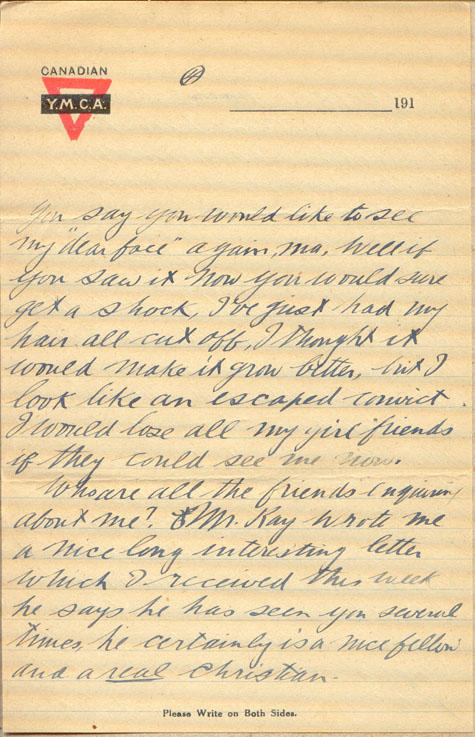 CANADIAN
Y.M.C.A.
④
191
You say you would like to see
my "dear face" again, ma. Well if
you saw it now you would sure
get a shock, I've just had my
hair all cut off, I thought it
would make it grow better, but I
look like an escaped convict.
I would lose all my girl friends
if they could see me now.
Who are all the friends enquiring
about me? Mr. Kay wrote me
a nice long interesting letter
which I received this week
he says he has seen you several
times, he certainly is a nice fellow
and a real Christian.
Please Write on Both Sides.